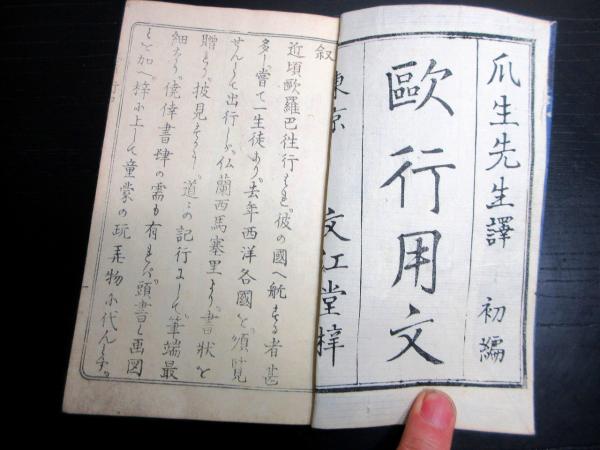 爪生先生譯 初編
歐行用文
東京 文江堂梓
叙
近頃歐羅巴徃行
彼の國へ航する者甚
多し嘗て一生徒あり去年西洋各國を須覧
せんとて出行しが仏蘭西馬塞里より書状を
贈より披見するに道この記行にして筆端最
細なり僥倖書肆の需も有
頭書く画図
を加へ梓に上して童蒙の玩弄物に代んとす